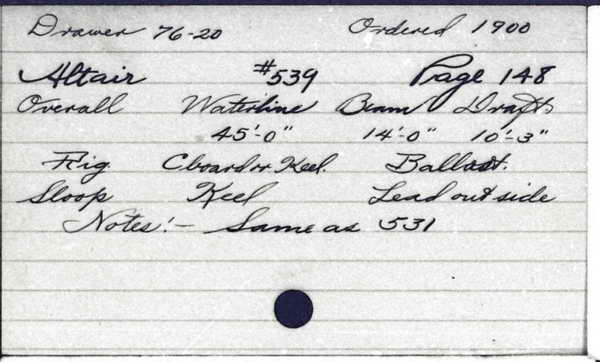 Drawer 76-20 Ordered 1900
Altair #539 Page 148
Overall Waterline Beam Draft
45'-0" 14'-0" 10'-3"
Rig C board or Keel. Ballast.
Sloop Keel Lead outside
Notes:- Same as 531